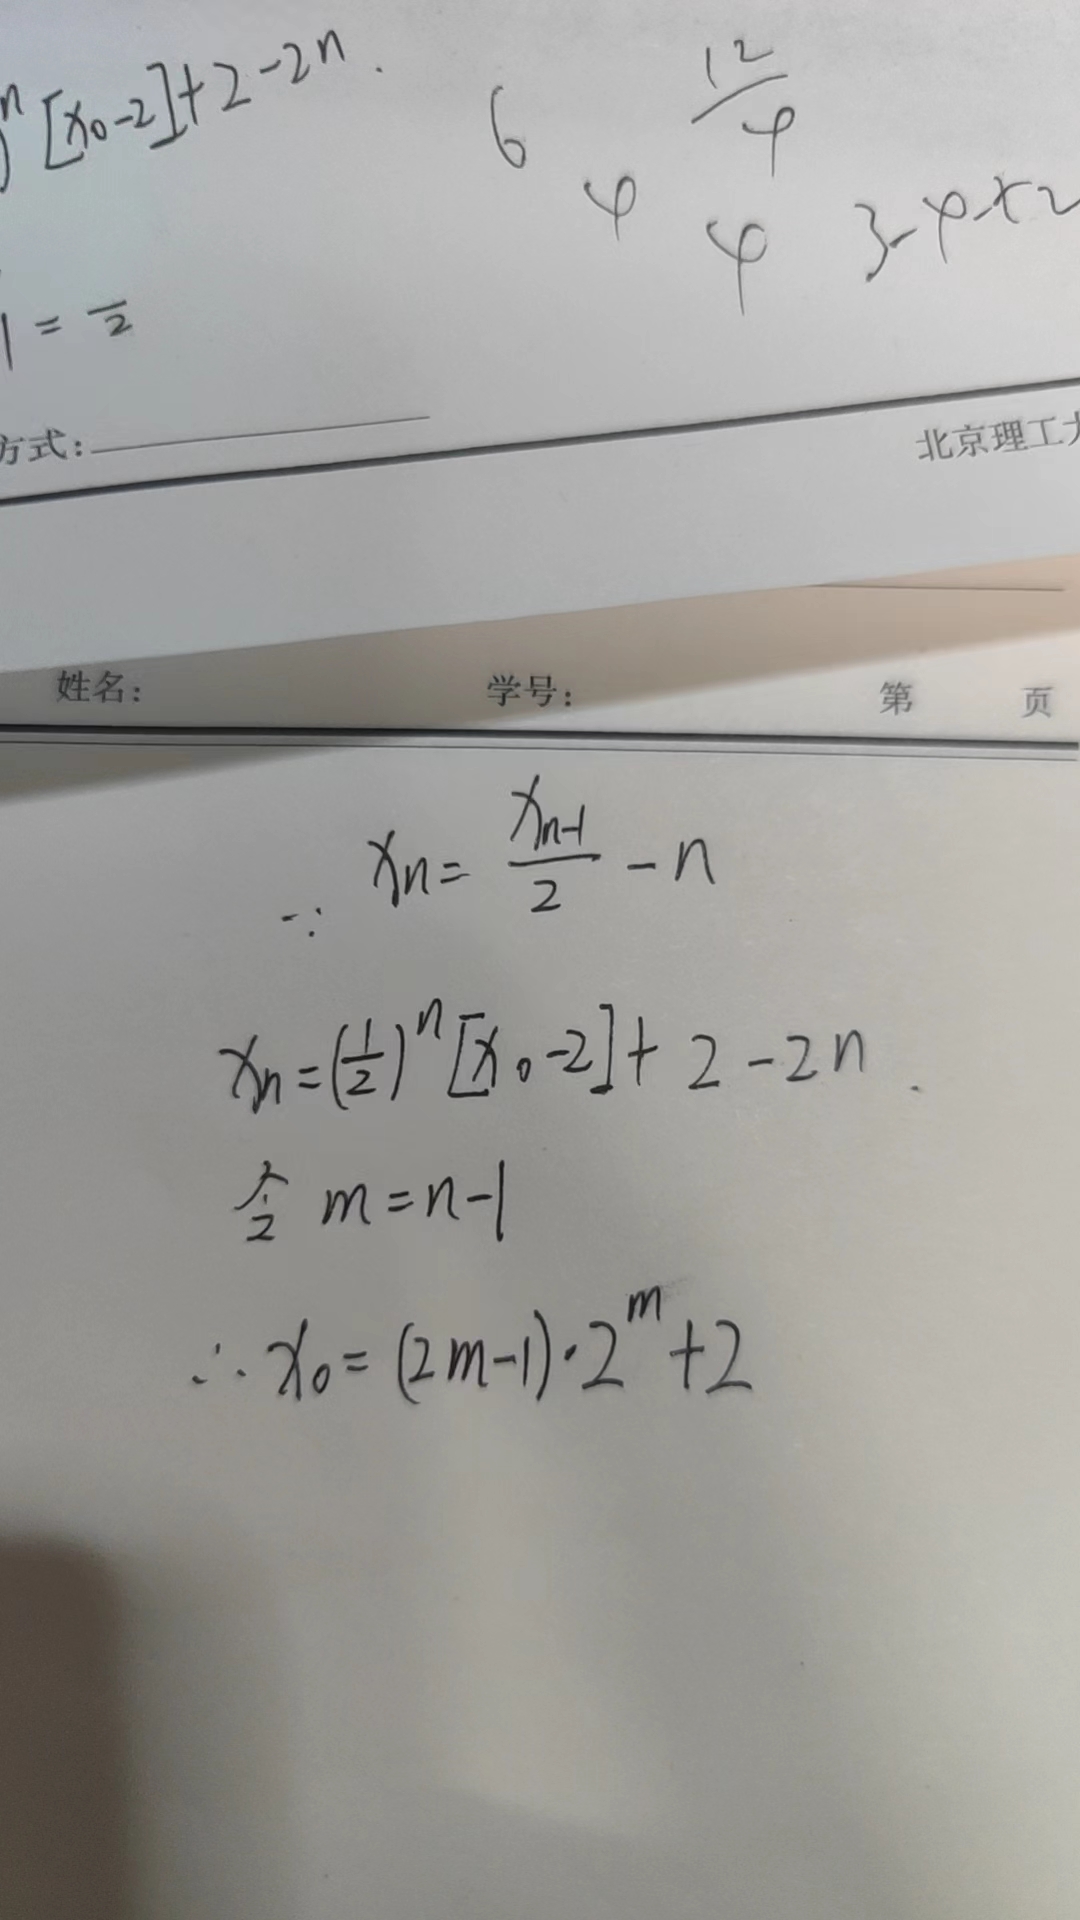 )ⁿ [x₀-2]+2-2n.
6 12/4
4 4 3-4+2
1 = 1/2
方式:
北京理工大
姓名: 学号: 第 页
∵ xₙ = xₙ₋₁/2 - n
xₙ = (1/2)ⁿ [x₀-2] + 2 - 2n.
令 m = n-1
∴ x₀ = (2m-1)·2ᵐ + 2